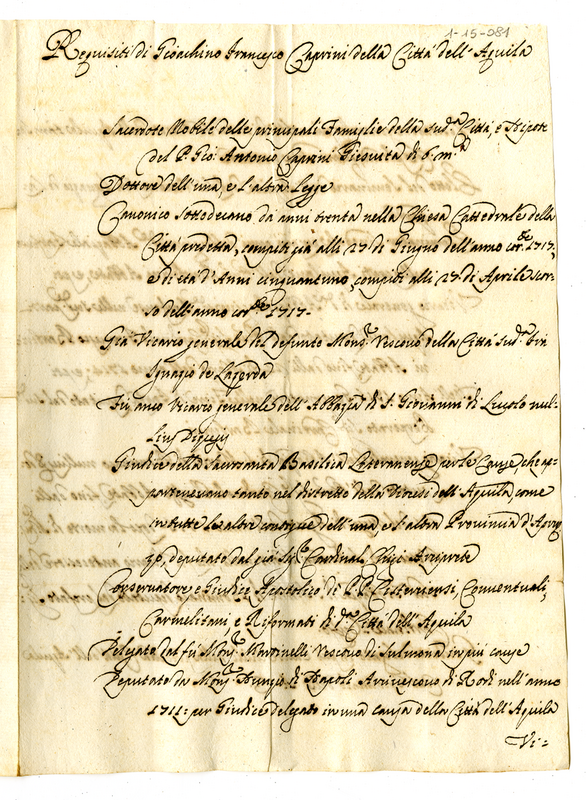 1-15-081
Requisiti di Gioachino Francesco Caprini della Città dell'Aquila
Sacerdote Nobile delle principali Famiglie della sud.ª Città, e Nipote
del P. Gio: Antonio Caprini Giesuita di b. m.ª
Dottore dell'una, e l'altra Legge
Canonico Sottodecano da anni trenta nella Chiesa Cattedrale della
Città predetta, compiti già alli 27 di Giugno dell'anno cor.te 1717,
e di età d'Anni cinquantuno, compiti alli 27 di Aprile scor-
so dell'anno cor.te 1717-
Già Vicario generale del defunto Mons.r Vescovo della Città sud.ª
Ignazio de Lazerda
Fù anco Vicario generale dell'Abbazia di S. Giovanni di Lucolo nul-
lius Diecesis
Giudice della Sacrosanta Basilica Lateranense per le Cause che ap-
partenevano tanto nel distretto della Diocesi dell'Aquila, come
in tutte le altre contigue dell'una e l'altra Provincia d'Apruz-
zo, deputato dal già Sig.r Cardinal Ghigi Arciprete
Conservatore e Giudice Apostolico de P.P. Cisterciensi, Conventuali,
Carmelitani e Riformati di d.ª Città dell'Aquila
Delegato dal fù Mons.r Martinelli Vescovo di Sulmona in più cause
Deputato da Mons.r Nunzio di Napoli Arcivescovo di Rodi nell'anno
1711: per Giudice delegato in una causa della Città dell'Aquila
Vi=